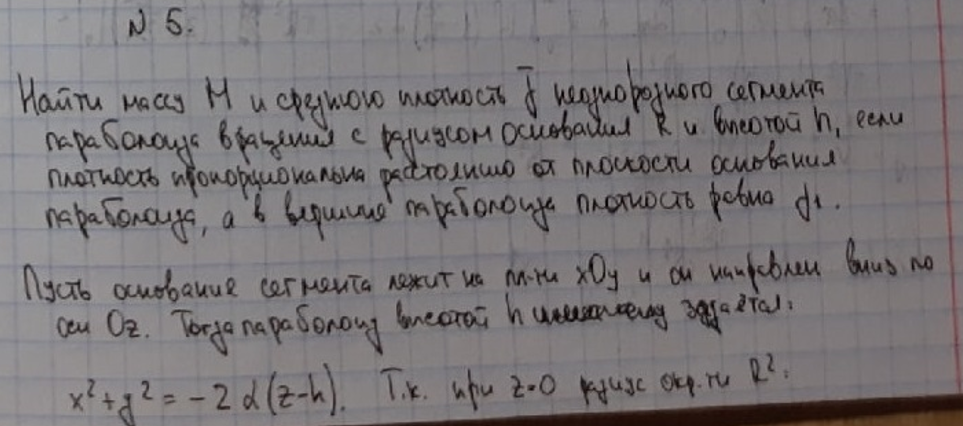 N 5.
Найти массу M и среднюю плотность γ̄ неоднородного сегмента
параболоида вращения с радиусом основания R и высотой h, если
плотность пропорциональна расстоянию от плоскости основания
параболоида, а в вершине параболоида плотность равна γ1.
Пусть основание сегмента лежит на пл-ти xOy и он направлен вниз по
оси Oz. Тогда параболоид высотой h задаётся:
x² + y² = -2α(z-h). Т.к. при z=0 радиус окр-ти R²: